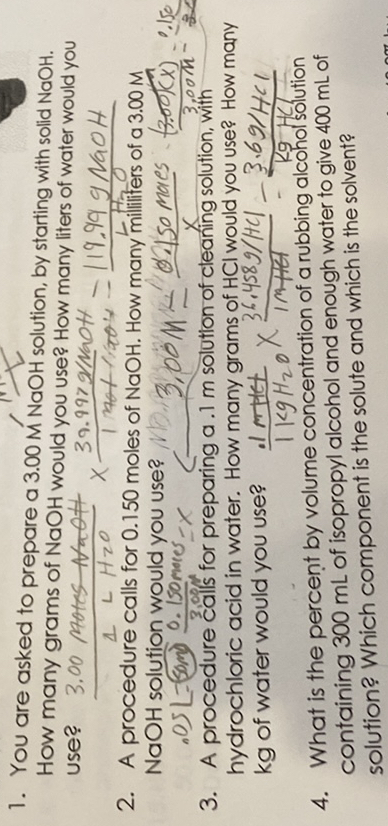 1. You are asked to prepare a 3.00 M NaOH solution, by starting with solid NaOH.
How many grams of NaOH would you use? How many liters of water would you
use? 3.00 moles NaOH / 1 L H2O x 39.997 g NaOH / 1 mol NaOH = 119.99 g NaOH / L H2O
2. A procedure calls for 0.150 moles of NaOH. How many milliliters of a 3.00 M
NaOH solution would you use? 3.00 M = 0.150 moles / x (3.00)(x) / 3.00 M = 0.150
.05 L = 50ml 0.150 moles / 3.00M = x
3. A procedure calls for preparing a .1 m solution of cleaning solution, with
hydrochloric acid in water. How many grams of HCl would you use? How many
kg of water would you use? .1 m HCl / 1 kg H2O x 36.458 g/HCl / 1 m HCl = 3.6 g/HCl / kg HCl
4. What is the percent by volume concentration of a rubbing alcohol solution
containing 300 mL of isopropyl alcohol and enough water to give 400 mL of
solution? Which component is the solute and which is the solvent?